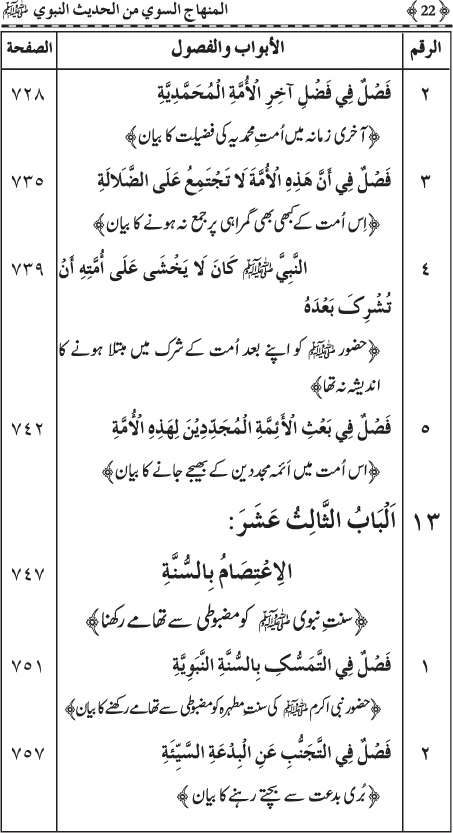 ﴿22﴾ المنهاج السوي من الحديث النبوي ﷺ
الرقم الأبواب والفصول الصفحة
٢ فَصْلٌ فِي فَضْلِ آخِرِ الْأُمَّةِ الْمُحَمَّدِيَّةِ ٧٢٨
﴿آخری زمانہ میں اُمتِ محمدیہ کی فضیلت کا بیان﴾
٣ فَصْلٌ فِي أَنَّ هَذِهِ الْأُمَّةَ لَا تَجْتَمِعُ عَلَى الضَّلَالَةِ ٧٣٥
﴿اِس اُمت کے کبھی بھی گمراہی پر جمع نہ ہونے کا بیان﴾
٤ النَّبِيَّ ﷺ كَانَ لَا يَخْشَى عَلَى أُمَّتِهِ أَنْ ٧٣٩
تُشْرِكَ بَعْدَهُ
﴿حضور ﷺ کو اپنے بعد اُمت کے شرک میں مبتلا ہونے کا
اندیشہ نہ تھا﴾
٥ فَصْلٌ فِي بَعْثِ الْأَئِمَّةِ الْمُجَدِّدِيْنَ لِهَذِهِ الْأُمَّةِ ٧٤٢
﴿اس اُمت میں اَئمہ مجددین کے بھیجے جانے کا بیان﴾
١٣ اَلْبَابُ الثَّالِثُ عَشَرَ:
الِاعْتِصَامُ بِالسُّنَّةِ ٧٤٧
﴿سنتِ نبوی ﷺ کو مضبوطی سے تھامے رکھنا﴾
١ فَصْلٌ فِي التَّمَسُّكِ بِالسُّنَّةِ النَّبَوِيَّةِ ٧٥١
﴿حضور نبی اکرم ﷺ کی سنتِ مطہرہ کو مضبوطی سے تھامے رکھنے کا بیان﴾
٢ فَصْلٌ فِي التَّجَنُّبِ عَنِ الْبِدْعَةِ السَّيِّئَةِ ٧٥٧
﴿بُری بدعت سے بچتے رہنے کا بیان﴾